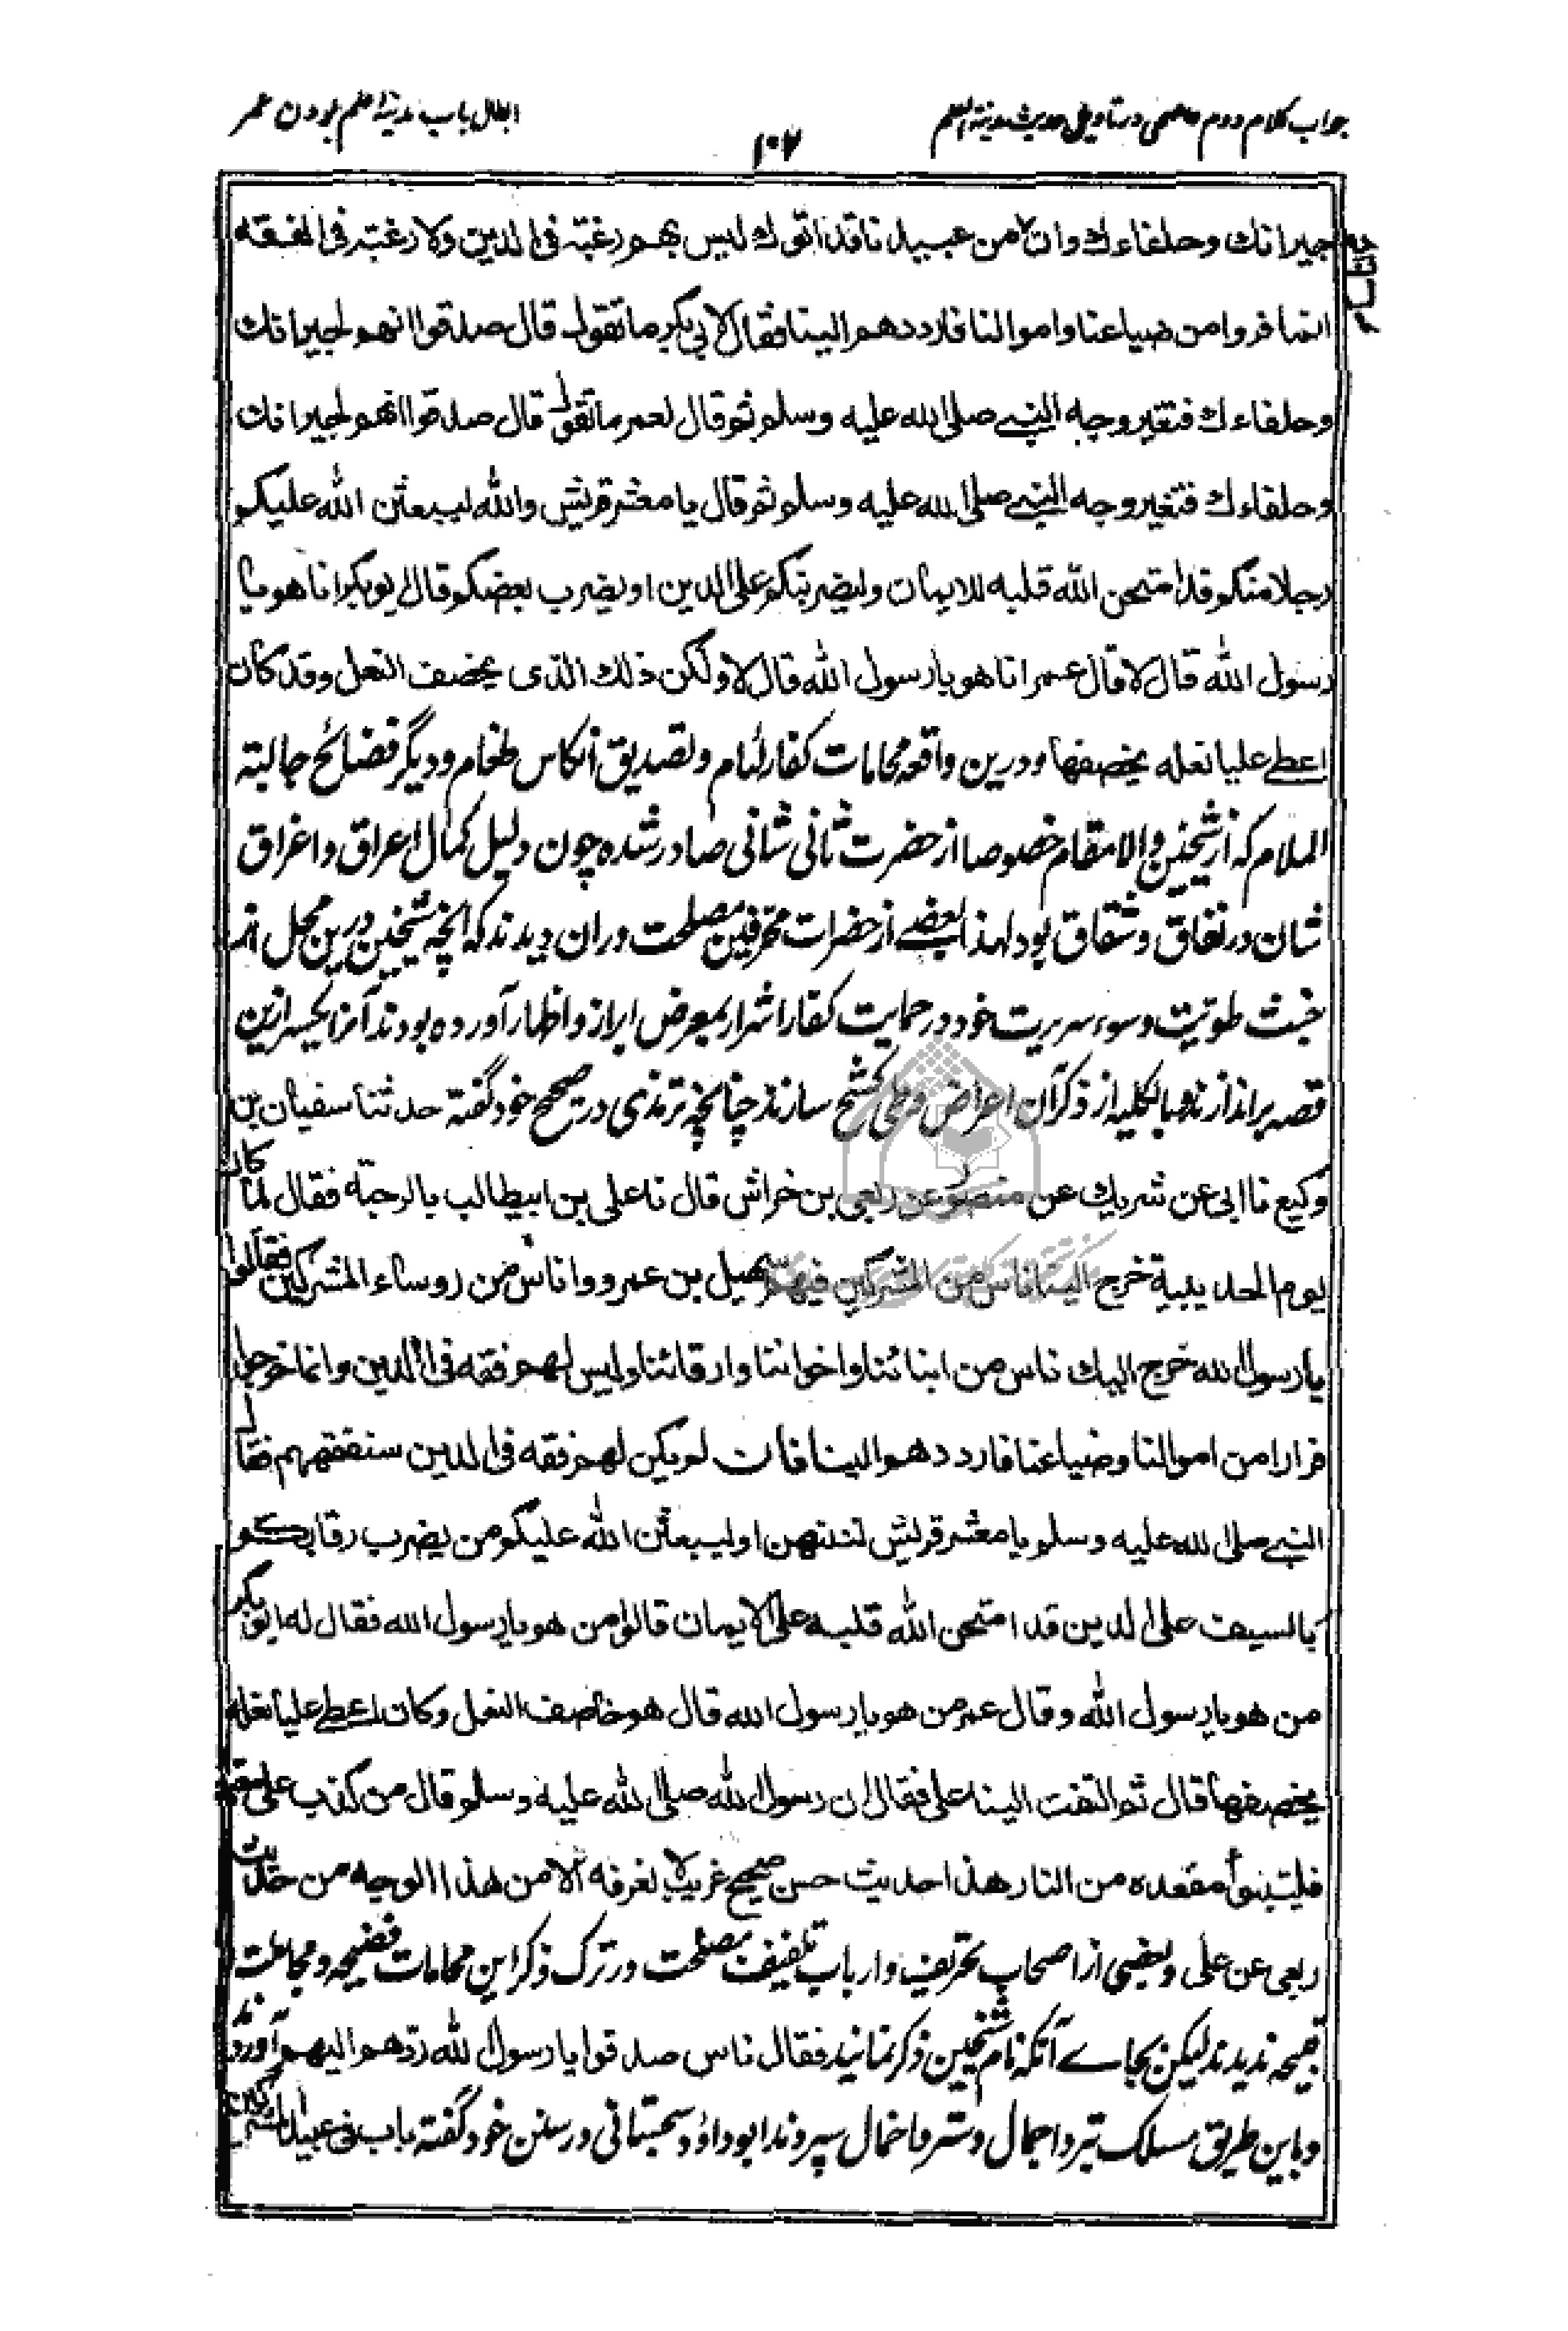 جواب کلام دوم عاصمی در تاویل حدیث مدینة العلم
۱۰۷
ابطال باب مدینة العلم بودن عمر
جيرانك وحلفاءك وان من عبيدنا قد اتوك ليس بهم رغبة في الدين ولا رغبة في الفقه
انما فروا من ضياعنا واموالنا فارددهم الينا فقال لابي بكر ما تقول قال صدقوا انهم لجيرانك
وحلفاءك فتغير وجه النبي صلى الله عليه وسلم ثم قال لعمر ما تقول قال صدقوا انهم لجيرانك
وحلفاءك فتغير وجه النبي صلى الله عليه وسلم ثم قال يا معشر قريش والله ليبعثن الله عليكم
رجلا منكم قد امتحن الله قلبه للايمان وليضربنكم على الدين او يضرب بعضكم قال ابو بكر انا هو يا
رسول الله قال لا قال عمر انا هو يا رسول الله قال لا ولكن ذلك الذي يخصف النعل وقد كان
اعطى عليا نعله يخصفها ودرین واقعه محامات کفار لئام وتصدیق انکاس طغام ودیگر فضائح جالبة
الملام که از شیخین والا مقام خصوصا از حضرت ثانی شانی صادر شده چون دلیل کمال اعراق واغراق
شان در نفاق وشقاق بود لهذا بعضے از حضرات محرفین مصلحت دران دیدند که انچه شیخین درین محل از
خبث طویت وسوء سریرت خود در حمایت کفار اشرار بمعرض ابراز واظهار آورده بودند آنرا یکسر ازین
قصه براندازند وبالکلیه از ذکر آن اعراض وطی کشح سازند چنانچه ترمذی در صحیح خود گفته حدثنا سفيان بن
وكيع نا ابي عن شريك عن منصور عن ربعي بن خراش قال نا علي بن ابيطالب بالرحبة فقال لما كان
يوم الحديبية خرج الينا ناس من المشركين فيهم سهيل بن عمرو واناس من روساء المشركين فقالوا
يا رسول الله خرج اليك ناس من ابنائنا واخواننا وارقائنا وليس لهم فقه في الدين وانما خرجوا
فرارا من اموالنا وضياعنا فارددهم الينا فان لم يكن لهم فقه في الدين سنفقههم فقال
النبي صلى الله عليه وسلم يا معشر قريش لتنتهن او ليبعثن الله عليكم من يضرب رقابكم
بالسيف على الدين قد امتحن الله قلبه على الايمان قالوا من هو يا رسول الله فقال له ابو بكر
من هو يا رسول الله وقال عمر من هو يا رسول الله قال هو خاصف النعل وكان اعطى عليا نعله
يخصفها قال ثم التفت الينا علي فقال ان رسول الله صلى الله عليه وسلم قال من كذب علي متعمدا
فليتبوأ مقعده من النار هذا حديث حسن صحيح غريب لا نعرفه الا من هذا الوجه من حديث
ربعي عن علي وبعضی از اصحاب تحریف وارباب تلفیف مصلحت در ترک ذکر این محامات فضیحه ومجاعلت
قبیحه ندیدند لیکن بجاے آنکه نام شیخین ذکر نمایند فقال ناس صدقوا يا رسول الله ردهم اليهم آوردند
وباین طریق مسلک تبرد اجمال وستر واخمال سپردند ابو داؤد سجستانی در سنن خود گفته باب في عبيد المشركين